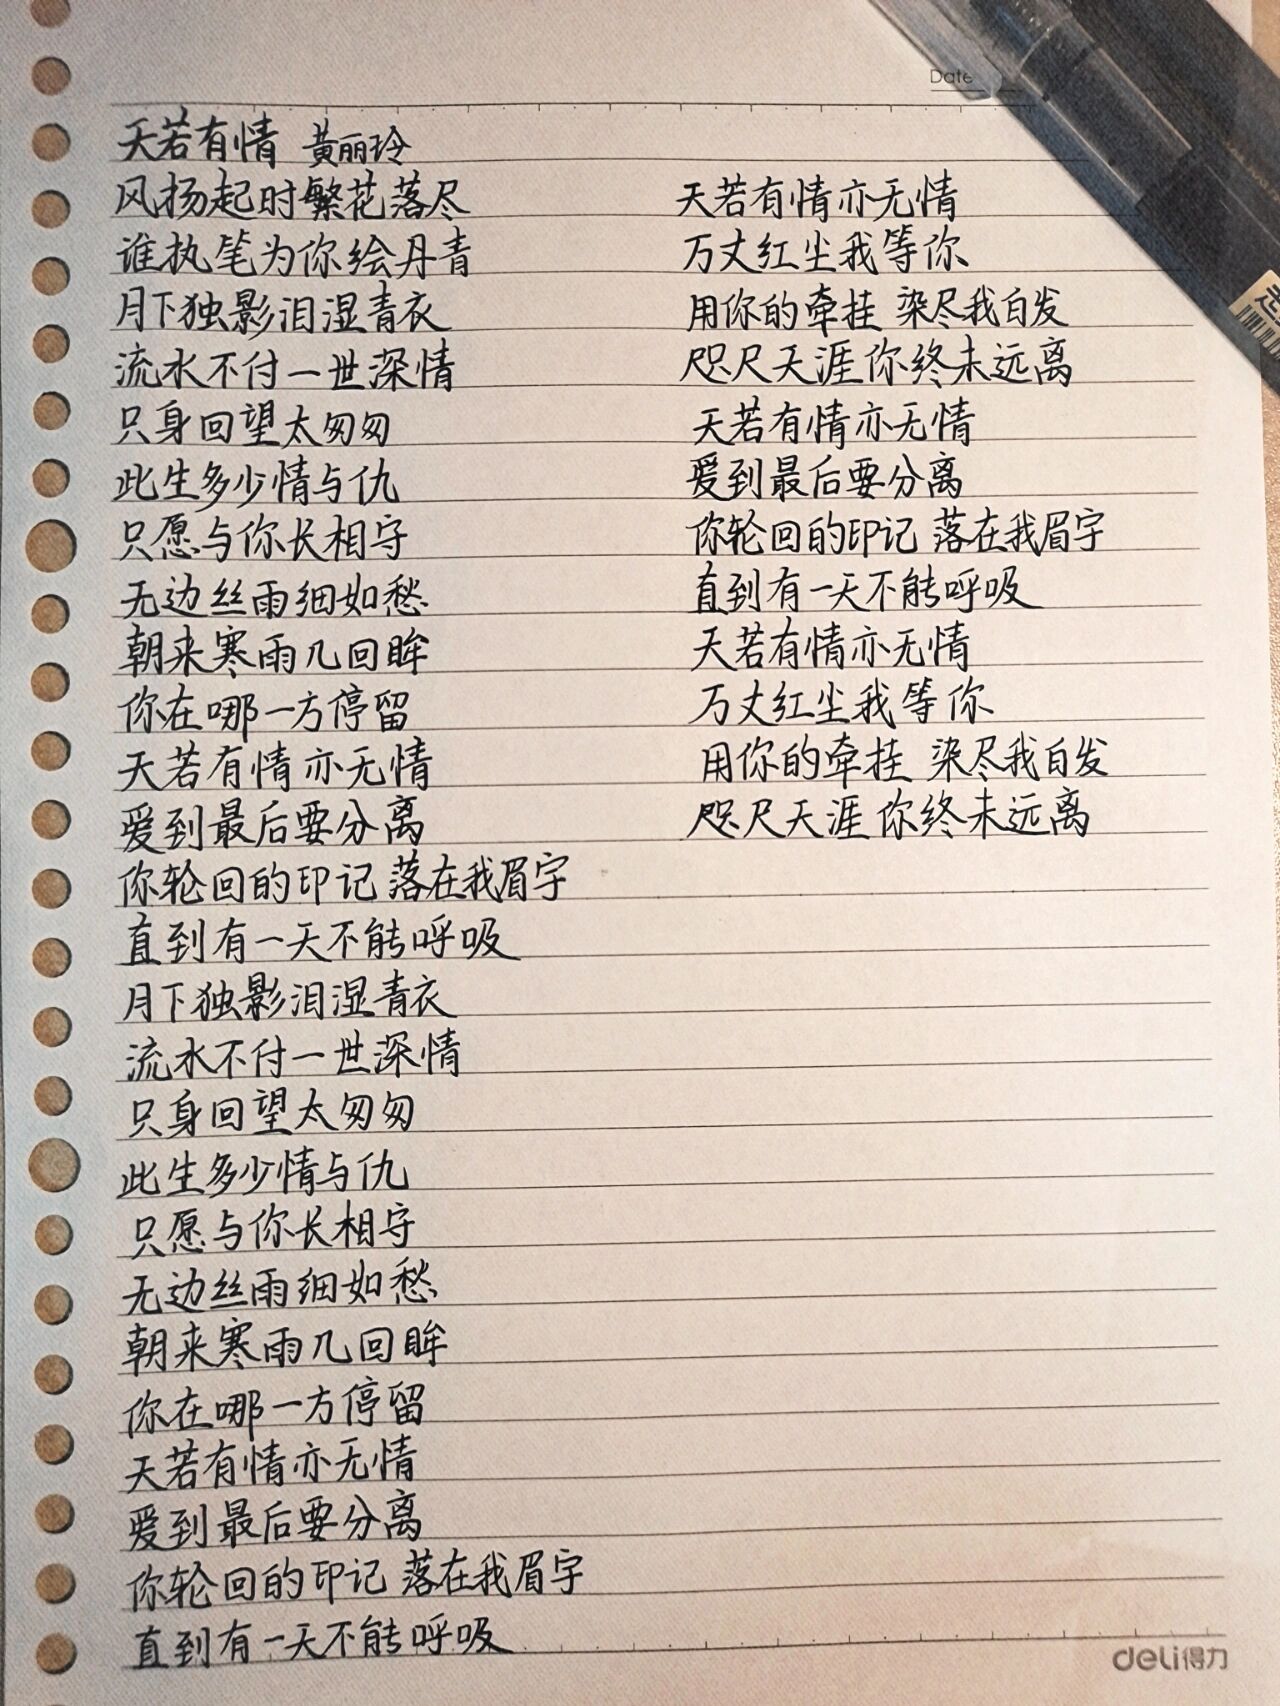 Date
天若有情 黄丽玲
风扬起时繁花落尽
谁执笔为你绘丹青
月下独影泪湿青衣
流水不付一世深情
只身回望太匆匆
此生多少情与仇
只愿与你长相守
无边丝雨细如愁
朝来寒雨几回眸
你在哪一方停留
天若有情亦无情
爱到最后要分离
你轮回的印记 落在我眉宇
直到有一天不能呼吸
月下独影泪湿青衣
流水不付一世深情
只身回望太匆匆
此生多少情与仇
只愿与你长相守
无边丝雨细如愁
朝来寒雨几回眸
你在哪一方停留
天若有情亦无情
爱到最后要分离
你轮回的印记 落在我眉宇
直到有一天不能呼吸
天若有情亦无情
万丈红尘我等你
用你的牵挂 染尽我白发
咫尺天涯你终未远离
天若有情亦无情
爱到最后要分离
你轮回的印记 落在我眉宇
直到有一天不能呼吸
天若有情亦无情
万丈红尘我等你
用你的牵挂 染尽我白发
咫尺天涯你终未远离
deli得力